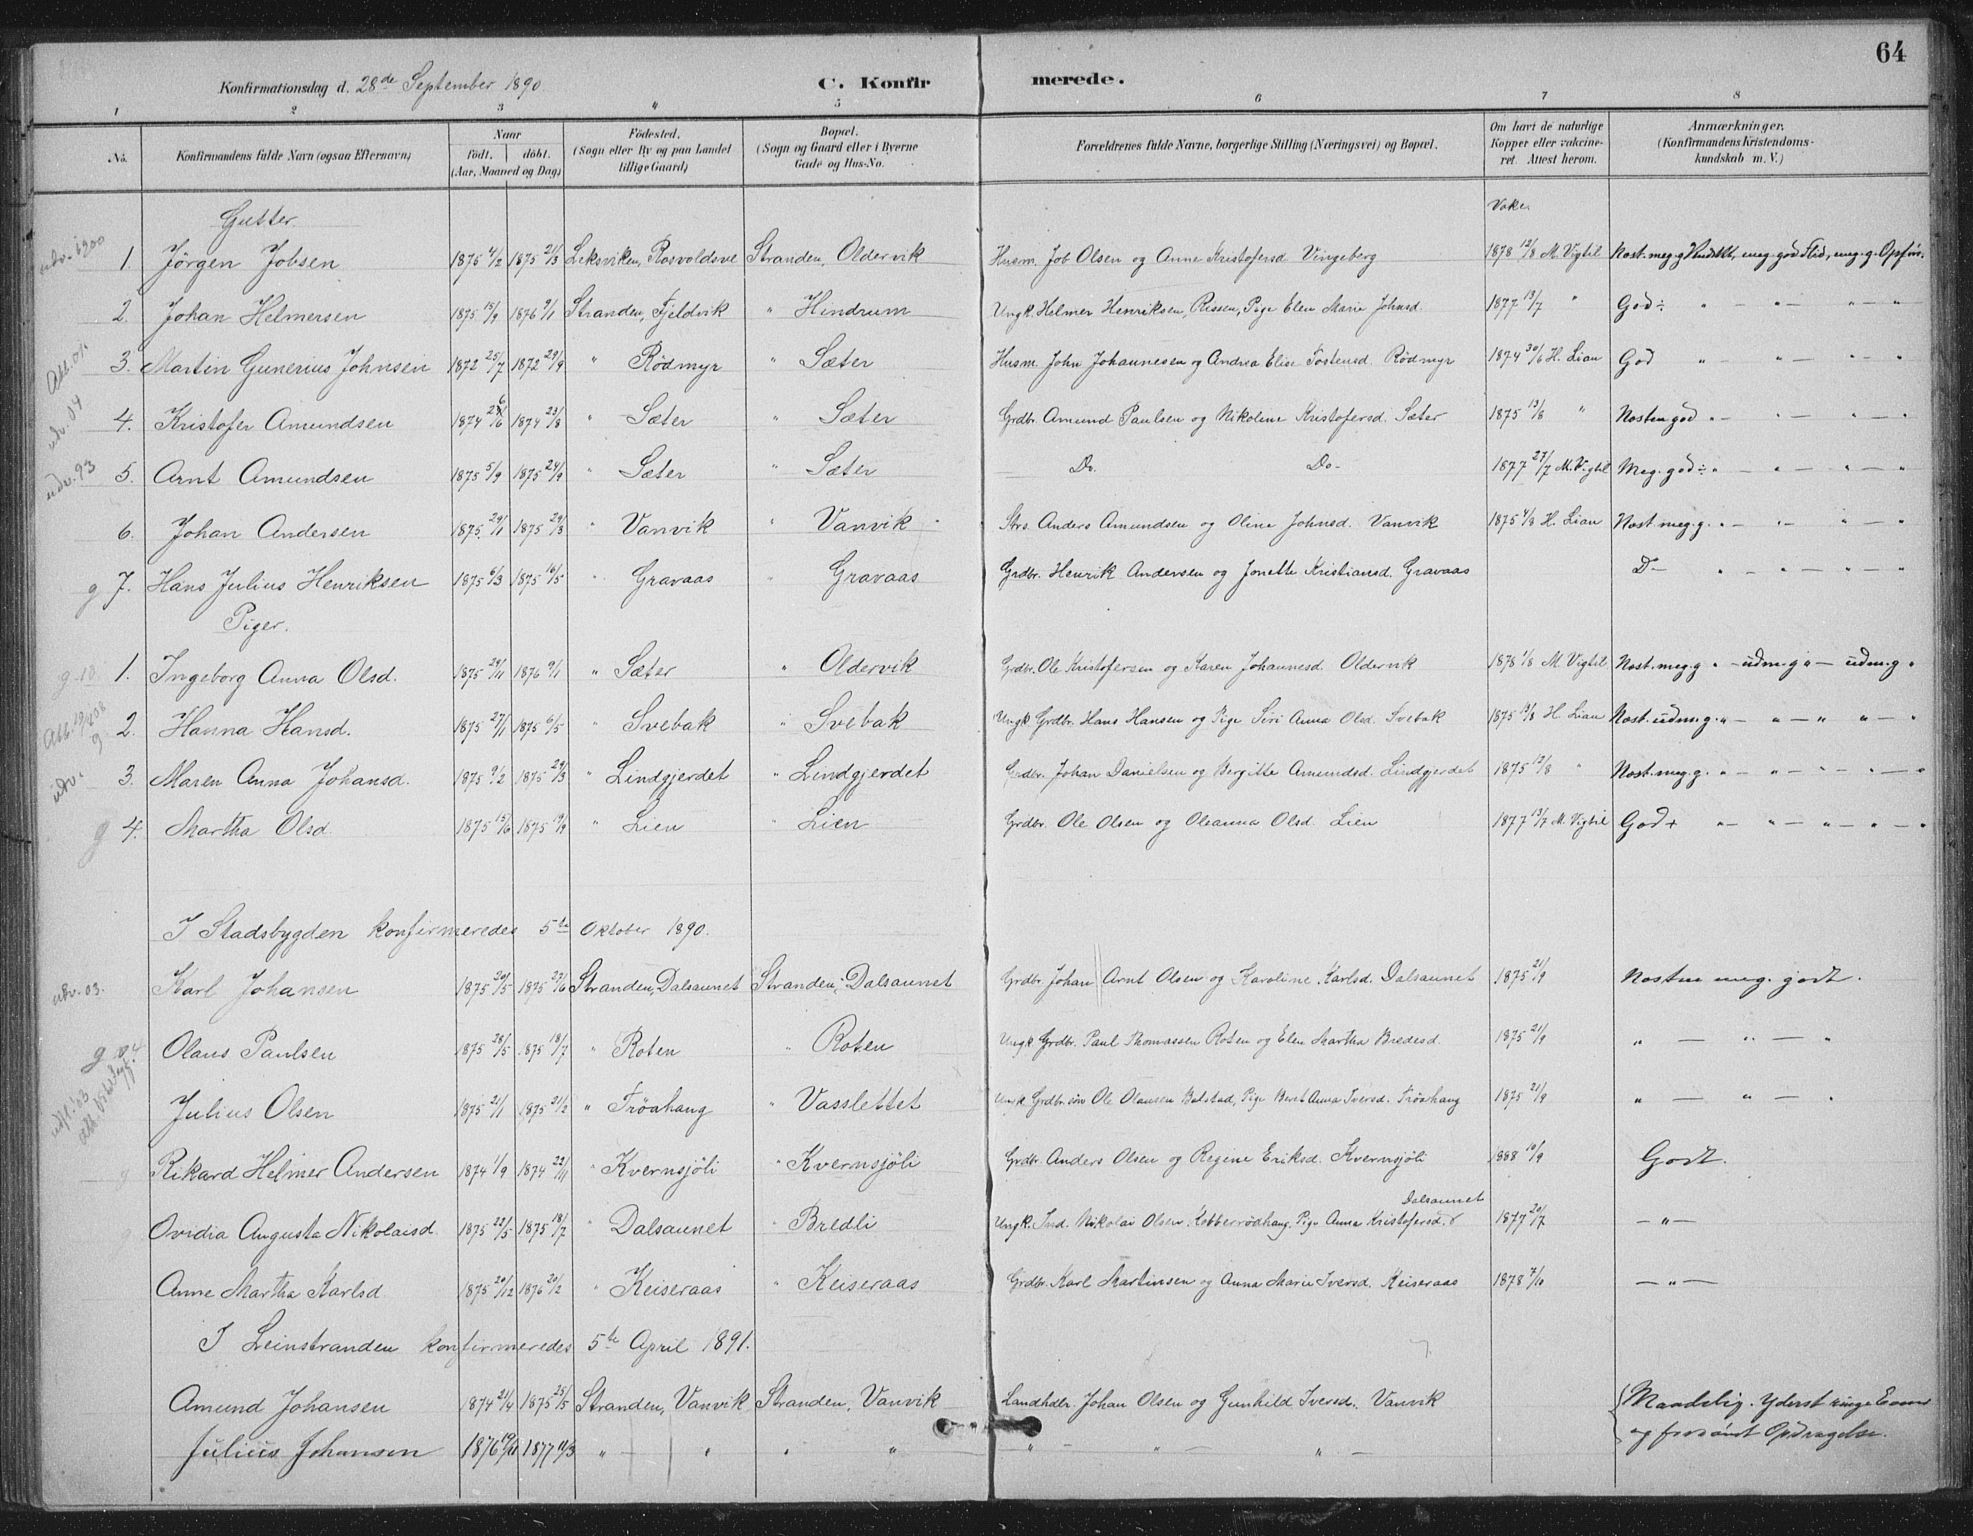 64
Konfirmationsdag d. 28de September 1890 C. Konfirmerede.
1 2 3 4 5 6 7 8
No. Konfirmandens fulde Navn (ogsaa Efternavn) Naar födt. döbt. (Aar, Maaned og Dag) Födested. (Sogn eller By og paa Landet tillige Gaard) Bopæl. (Sogn og Gaard eller i Byerne Gade og Hus-No. Forældrenes fulde Navne, borgerlige Stilling (Næringsvei) og Bopæl. Om havt de naturlige Kopper eller vakcineret. Attest herom. Anmærkninger. (Konfirmandens Kristendomskundskab m. V.)
Gutter. Vakc.
1. Jörgen Jobsen 1875 4/2 1875 21/3 Leksviken, Rosvoldsve Stranden, Oldervik Husm. Job Olsen og Anne Kristofersd Vingeberg 1878 12/8 M. Vigtil Nost. meg. g. meg. god Flid, meg. g. Opför.
2. Johan Helmersen 1875 15/9 1876 9/1 Stranden, Fjeldvik " Hindrum Ungk. Helmer Henriksen, Rissen, Pige Elen Marie Johnsd. 1877 13/7 " God ÷ " — " — " — "
3. Martin Gunerius Johnsen 1872 25/7 1872 29/9 " Rödmyr " Sæter Husm. John Johannesen og Andrea Elise Tostensd. Rödmyr 1874 30/6 H. Lian God " " — " — "
4. Kristofer Amundsen 1874 26/6 1874 23/8 " Sæter " Sæter Grdbr. Amund Paulsen og Nikoline Kristofersd. Sæter 1875 13/8 " Nosten god " — " — " — "
5. Arnt Amundsen 1875 5/9 1875 24/9 " Sæter " Sæter — Do. Do - 1877 27/7 M. Vigtil Meg. god ÷ " — " — " — "
6. Johan Andersen 1875 29/1 1875 29/3 " Vanvik " Vanvik Strs. Anders Amundsen og Oline Johnsd. Vanvik 1875 4/8 H. Lian Nost. meg. g. " — " — " — "
g 7. Hans Julius Henriksen 1875 6/3 1875 16/5 " Gravaas " Gravaas Grdbr. Henrik Andersen og Jonette Kristiansd. Gravaas D— " — " — " — "
Piger.
1. Ingeborg Anna Olsd. 1875 29/11 1876 9/1 " Sæter " Oldervik Grdbr. Ole Kristofersen og Karen Johannesd. Oldervik 1878 1/8 M. Vigtil Nost. meg. g " — udm. g " — udm. g "
2. Hanna Hansd. 1875 27/1 1875 6/5 " Svebak " Svebak Ungk. Grdbr. Hans Hansen og Pige Siri Anna Olsd. Svebak 1875 13/8 H. Lian Nost. udm. g. " — " — " " — "
udv. 3. Maren Anna Johansd. 1875 9/2 1875 29/3 " Lindgjerdet " Lindgjerdet Grdbr. Johan Danielsen og Bergitte Amundsd. Lindgjerdet 1875 13/8 " Nost. meg. g. " — " — " — " — "
g 4. Martha Olsd 1875 15/6 1875 19/9 " Lien " Lien Grdbr. Ole Olsen og Oleanna Olsd. Lien 1877 13/7 M. Vigtil God + " — " — " — " — "
I Stadsbygden konfirmeredes 5te Oktober 1890.
udv. 03. Karl Johansen 1875 20/5 1875 27/6 Stranden, Dalsaunet Stranden, Dalsaunet Grdbr. Johan Arnt Olsen og Karoline Karlsd. Dalsaunet 1875 21/9 Nosten meg. godt.
Olaus Paulsen 1875 28/5 1875 18/7 " Roten " Roten Ungk. Grdbr. Paul Thomassen Roten og Elen Martha Bredesd. 1875 21/9 " — " — "
Julius Olsen 1875 21/1 1875 21/2 " Tröahaug " Vasslettet Ungk. Grdbr. sön Ole Olausen Balstad, Pige Beret Anna Iversd. Tröahaug 1875 21/9 " — " — "
g Rikard Helmer Andersen 1874 1/9 1874 22/11 " Kvernsjöli " Kvernsjöli Grdbr. Anders Olsen og Regine Eriksd. Kvernsjöli 1888 10/9 Godt.
g Ovidia Augusta Nikolaisd. 1875 23/5 1875 18/7 " Dalsaunet " Bredli Ungk. Ind. Nikolai Olsen Kobberrödhaug, Pige Anna Kristofersd. Dalsaunet 1877 20/7 — " —
Anne Martha Karlsd 1875 20/12 1876 20/2 " Keiseraas " Keiseraas Grdbr. Karl Martinsen og Anna Marie Iversd. Keiseraas 1878 7/10 — " —
I Leinstranden konfirmeredes 5te April 1891.
Amund Johansen 1874 21/4 1875 25/5 Stranden, Vanvik Stranden, Vanvik Landhdlr. Johan Olsen og Gunhild Iversd. Vanvik Maadelig. Yderst ringe Evner
Julius Johansen 1876 19/11 1877 11/3 " — " " " " — " — " — og forsömt Opdragelse.